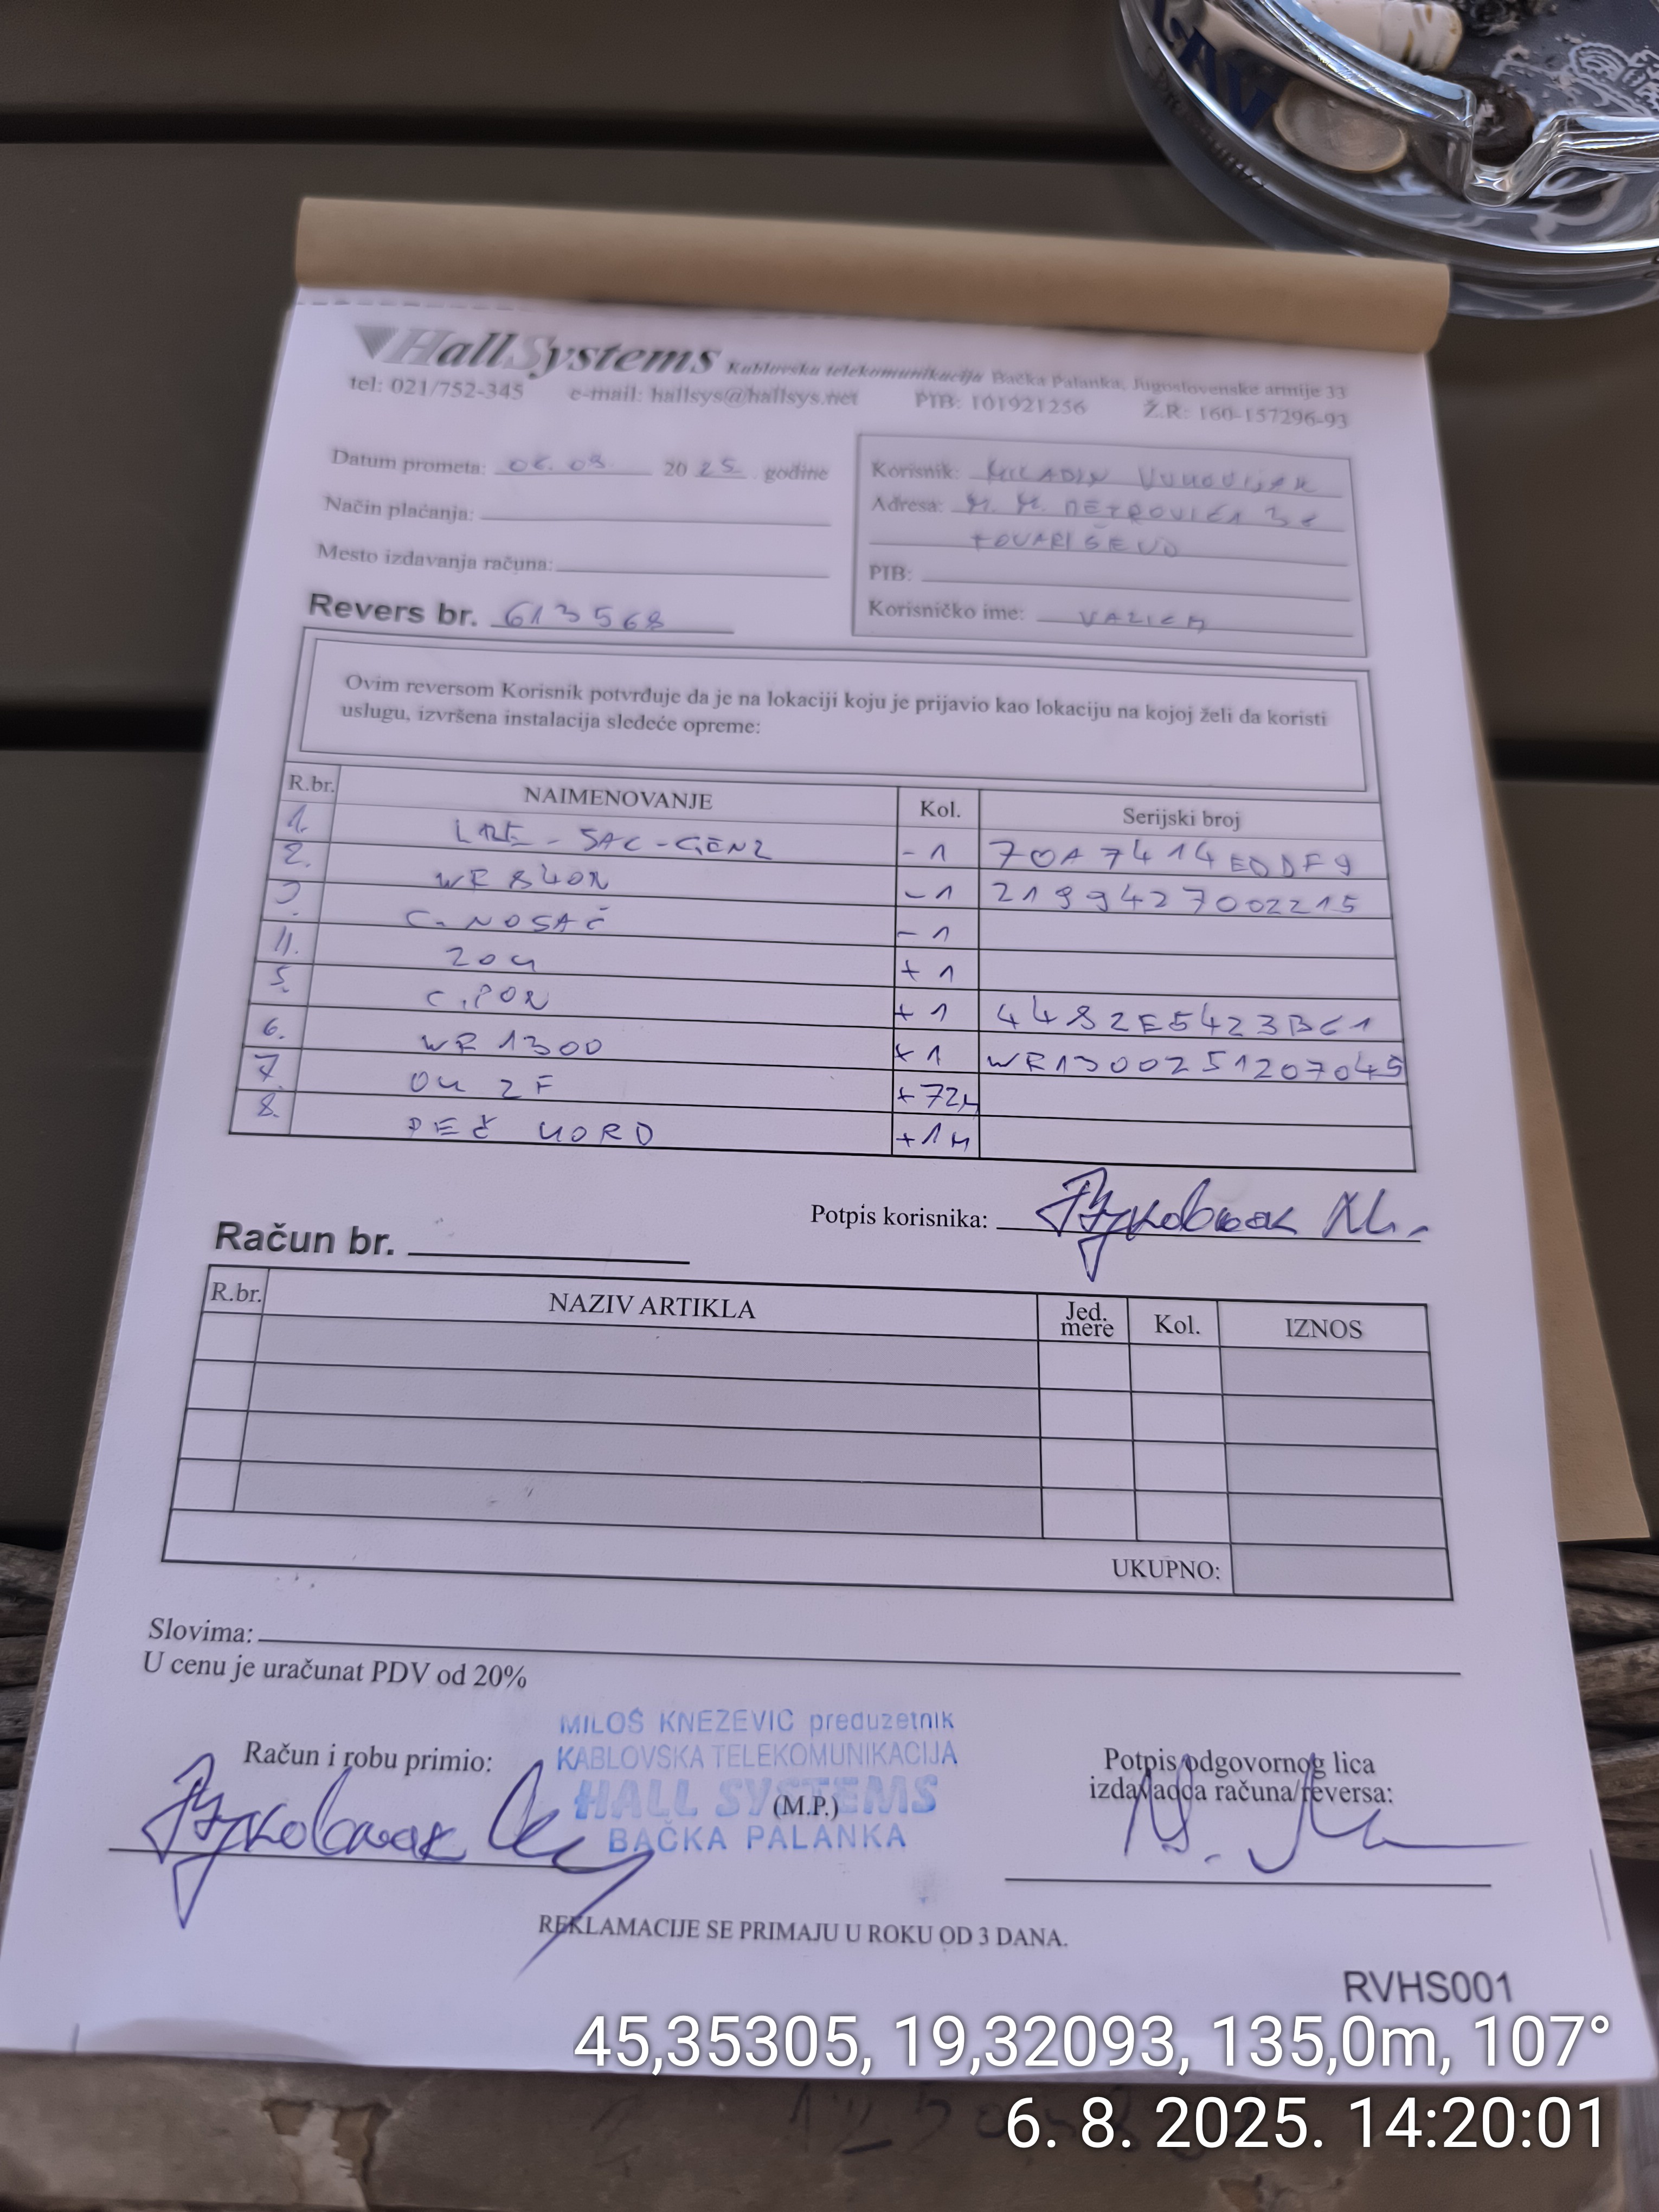 HallSystems Kablovska telekomunikacija Bačka Palanka, Jugoslovenske armije 33
tel: 021/752-345 e-mail: hallsys@hallsys.net PIB: 101921256 Ž.R: 160-157296-93
Datum prometa: 06.08. 2025. godine
Način plaćanja:
Mesto izdavanja računa:
Revers br. 613568
Korisnik: MLADEN
Adresa: M. M. PETROVIĆA
TOVARIŠEVO
PIB:
Korisničko ime:
Ovim reversom Korisnik potvrđuje da je na lokaciji koju je prijavio kao lokaciju na kojoj želi da koristi
uslugu, izvršena instalacija sledeće opreme:
R.br. NAIMENOVANJE Kol. Serijski broj
1. LBE-5AC-GEN2 -1 70A7414EDDF9
2. WR 840N -1 2199427002215
3. C. NOSAČ -1
4. ZOK +1
5. C.PON +1 4482E5423BC1
6. WR 1300 +1 WR1300251207045
7. OK 2F +72M
8. PEČ KORD +1M
Potpis korisnika:
Račun br.
R.br. NAZIV ARTIKLA Jed. mere Kol. IZNOS
UKUPNO:
Slovima:
U cenu je uračunat PDV od 20%
MILOŠ KNEZEVIĆ preduzetnik
KABLOVSKA TELEKOMUNIKACIJA
HALL SYSTEMS
BAČKA PALANKA
Račun i robu primio:
(M.P.)
Potpis odgovornog lica
izdavaoca računa/reversa:
REKLAMACIJE SE PRIMAJU U ROKU OD 3 DANA.
RVHS001
45,35305, 19,32093, 135,0m, 107°
6. 8. 2025. 14:20:01